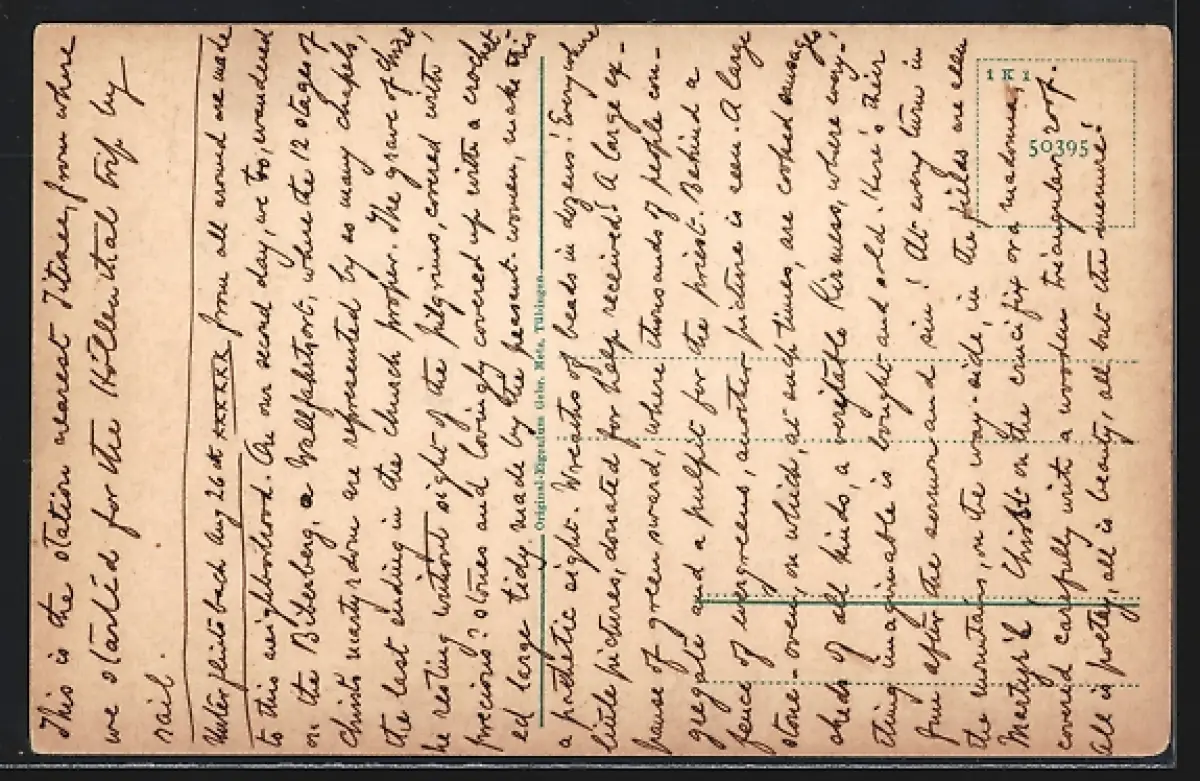 This is the station nearest Titisee, from where
we started for the Höllenthal trip by
rail.
Unterglintsbach Aug 26th from all around are made
to this neighborhood. On our second day, we too, wandered
on the Bilserberg, a Wallfahrtsort, where the 12 stages of
Christ's martyrdom are represented by as many chapels,
the last ending in the church proper. The grave of
he resting without sight of the pilgrims, covered with
precious? stones and lovingly covered up with a crochet-
ed large tidy made by the peasant-women, make this
a pathetic sight. Wreaths of beads in dozens! Everywhere
little pictures, donated for help received! A large ex-
panse of greensward, where thousands of people con-
gregate and a pulpit for the priest. Behind a
fence of evergreens, another picture is seen. A large
stone-oven, on which, at such times, are cooked sausages
sheds of all kinds, a veritable Kirmess, where every-
thing imaginable is bought and sold. Here's their
fun after the sermon and sin! At every turn in
the mountains, on the way-side, in the fields are
Martyrs, Christ on the crucifix or a madonna,
covered carefully with a wooden triangular roof.
All is poetry, all is beauty, all but the menure!
Original-Eigentum Gebr. Metz, Tübingen
1 K 1
50395